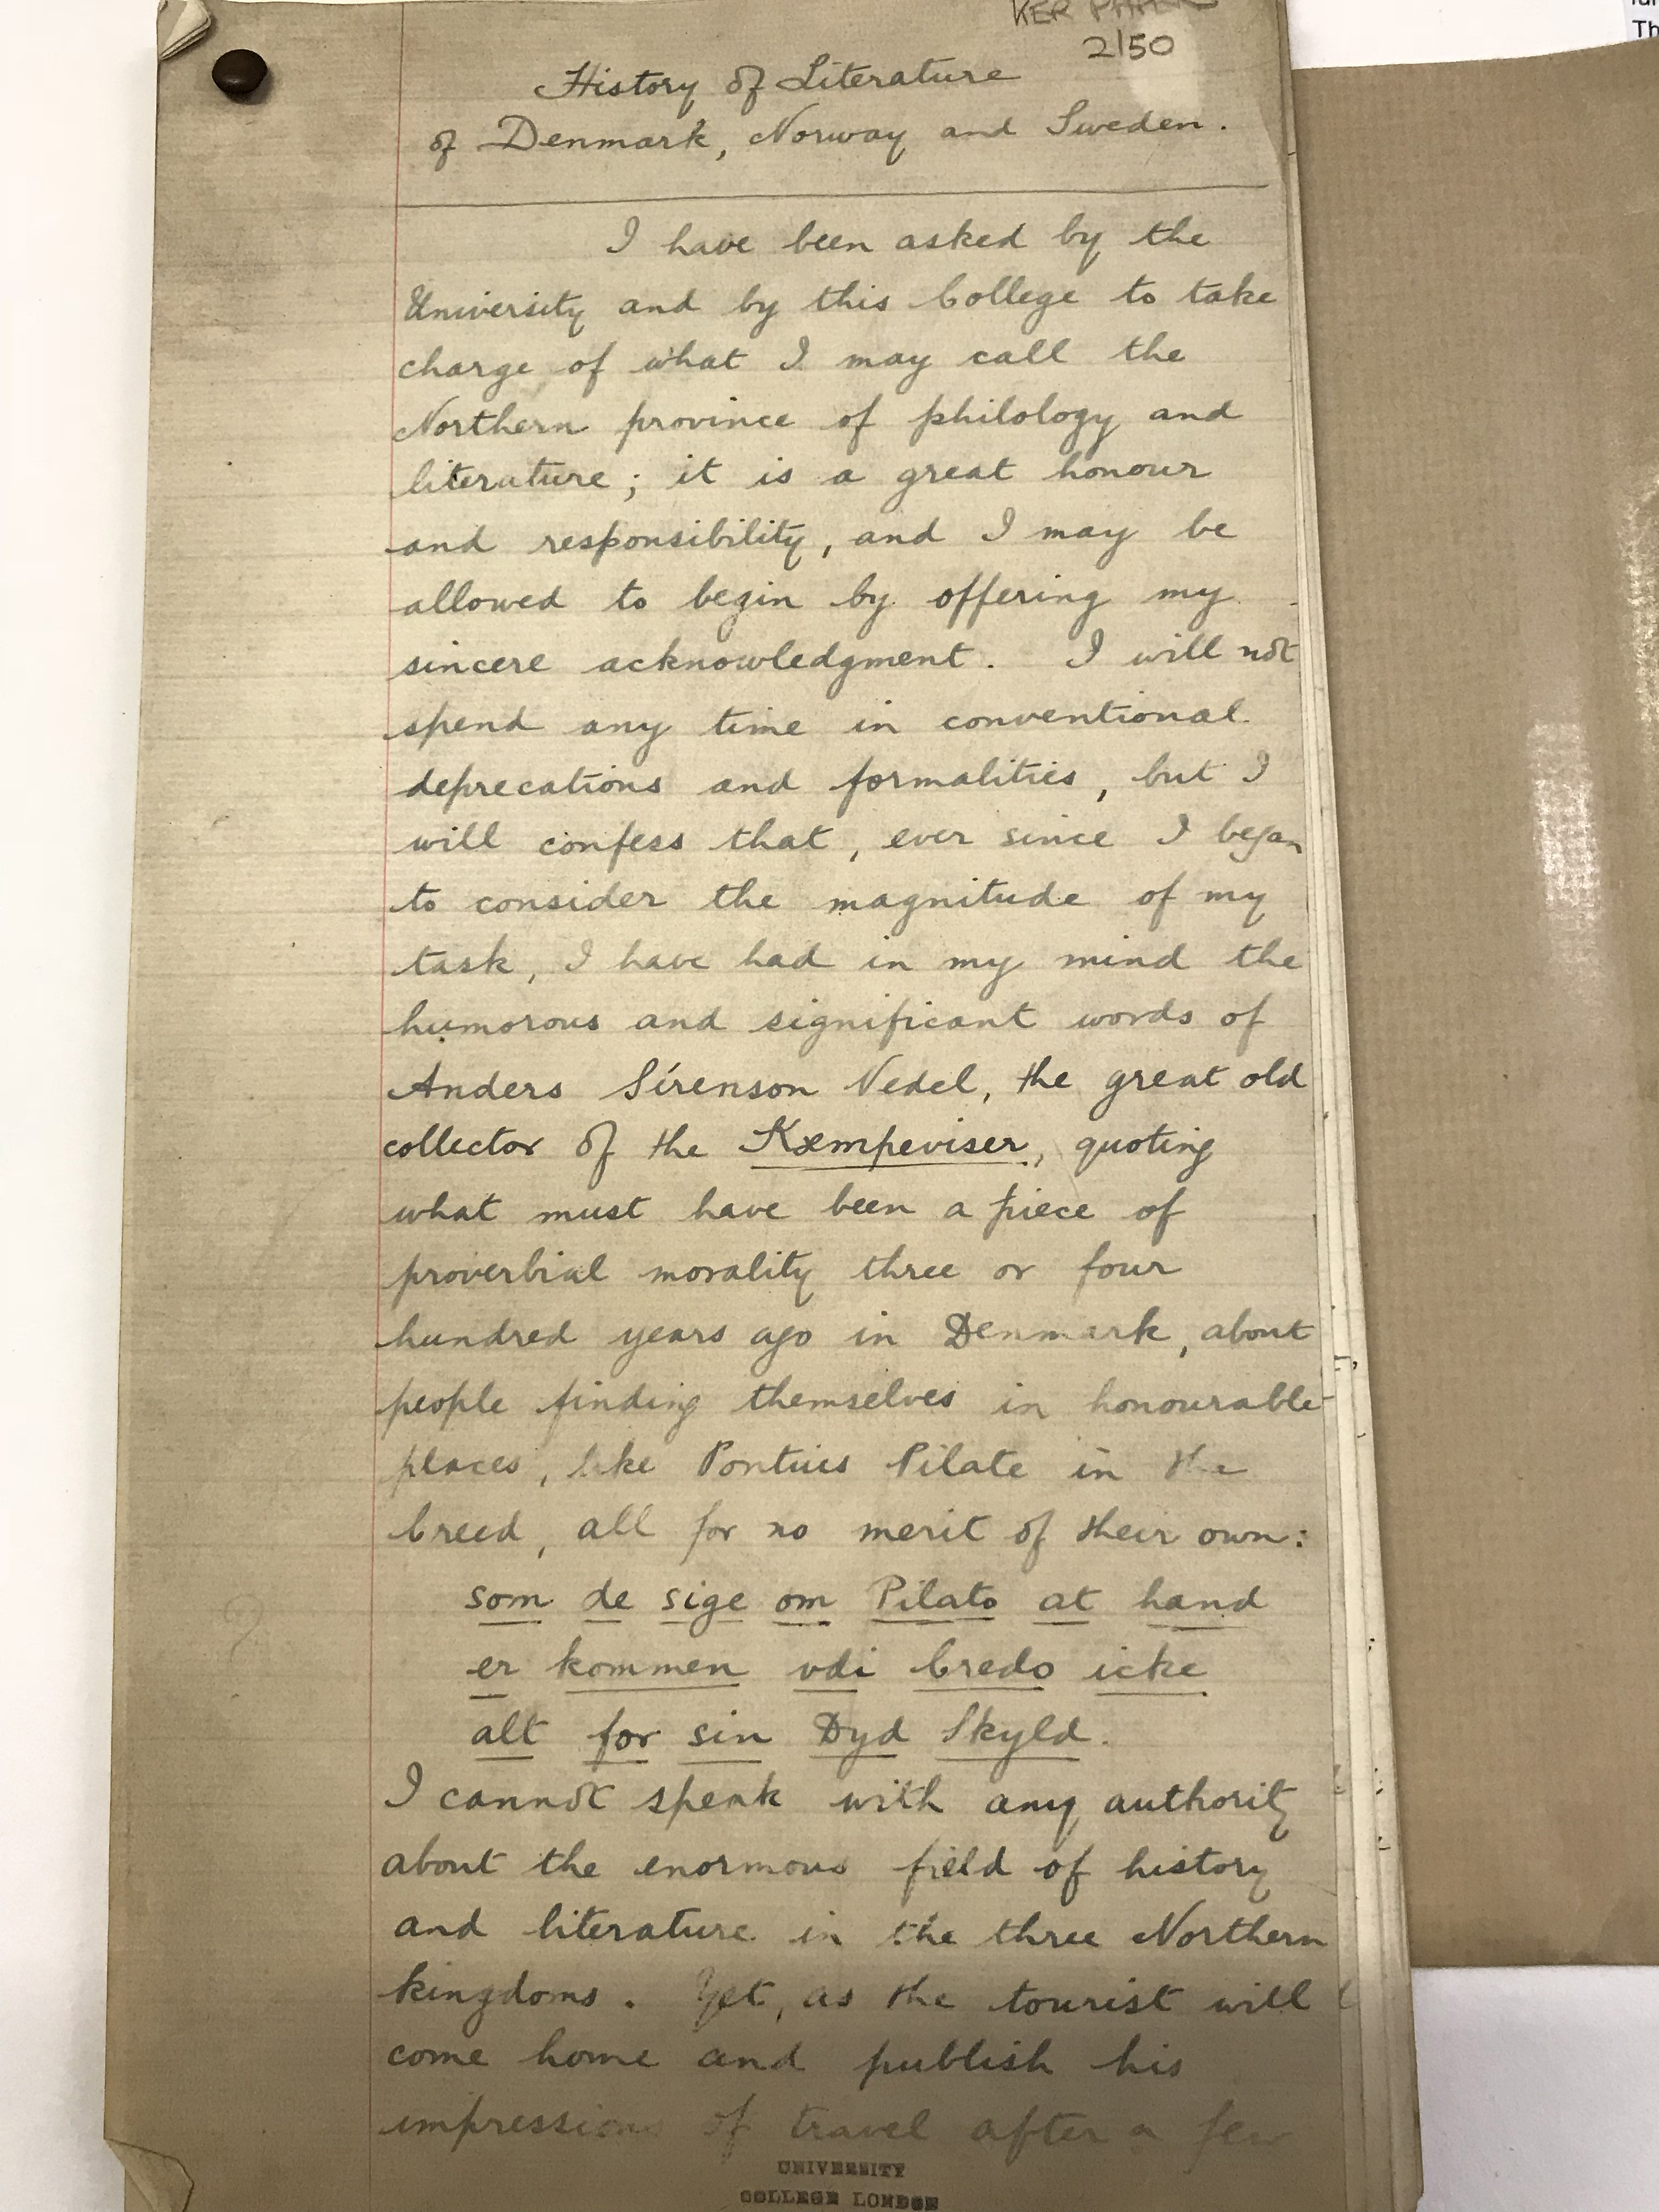 KER PAPER
2/50
History of Literature
of Denmark, Norway and Sweden.
I have been asked by the
University and by this College to take
charge of what I may call the
Northern province of philology and
literature; it is a great honour
and responsibility, and I may be
allowed to begin by offering my
sincere acknowledgment. I will not
spend any time in conventional
deprecations and formalities, but I
will confess that, ever since I began
to consider the magnitude of my
task, I have had in my mind the
humorous and significant words of
Anders Sírenson Vedel, the great old
collector of the Kæmpeviser, quoting
what must have been a piece of
proverbial morality three or four
hundred years ago in Denmark, about
people finding themselves in honourable
places, like Pontius Pilate in the
Creed, all for no merit of their own:
som de sige om Pilato at hand
er kommen vdi Credo icke
alt for sin Dyd Skyld.
I cannot speak with any authority
about the enormous field of history
and literature in the three Northern
kingdoms. Yet, as the tourist will
come home and publish his
impressions of travel after a few
UNIVERSITY
COLLEGE LONDON
Th